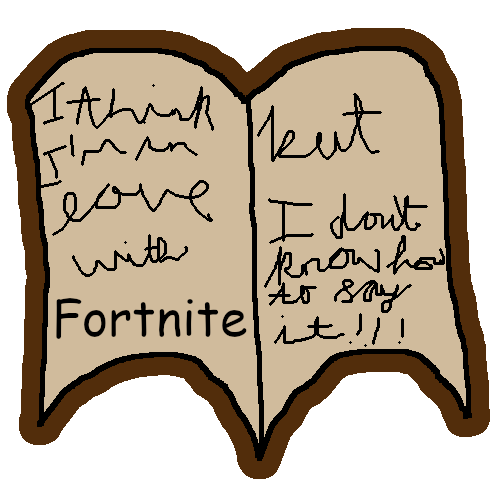 I think
I'm in
love
with
Fortnite
but
I don't
know how
to say
it!!!